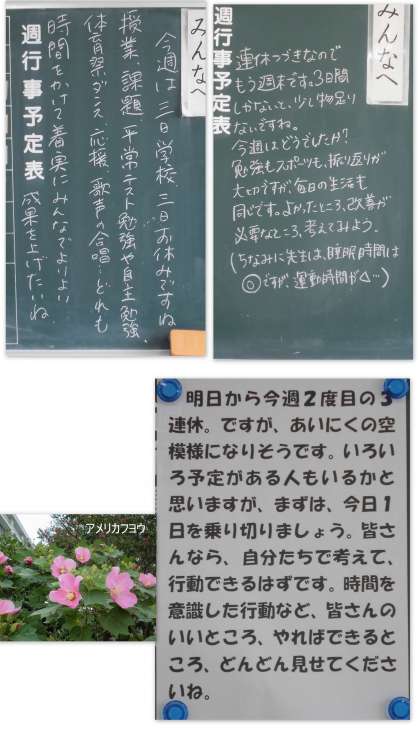 みんなへ
今週は三日学校、三日お休みですね。
授業、課題、平常テスト勉強や自主勉強、
体育祭、ダンス、応援、歌声の合唱…どれも
時間をかけて着実にみんなでよりよい
成果を上げたいね。
週行事予定表
みんなへ
週行事予定表
連休つづきなので
もう週末です。3日間
しかないと、少し物足り
ないですね。
今週はどうでしたか?
勉強もスポーツも、振り返りが
大切ですが、毎日の生活も
同じです。よかったところ、改善が
必要なところ、考えてみよう。
(ちなみに先生は、睡眠時間は
◎ですが、運動時間が△…)
明日から今週2度目の3
連休。ですが、あいにくの空
模様になりそうです。いろい
ろ予定がある人もいるかと
思いますが、まずは、今日1
日を乗り切りましょう。皆さ
んなら、自分たちで考えて、
行動できるはずです。時間を
意識した行動など、皆さんの
いいところ、やればできると
ころ、どんどん見せてくださ
いね。
アメリカフヨウ